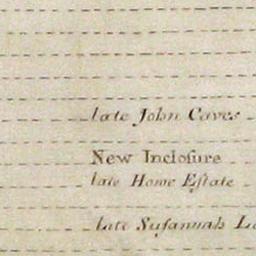 late John Caves
New Inclosure
late Home Eſtate
late Suſannah